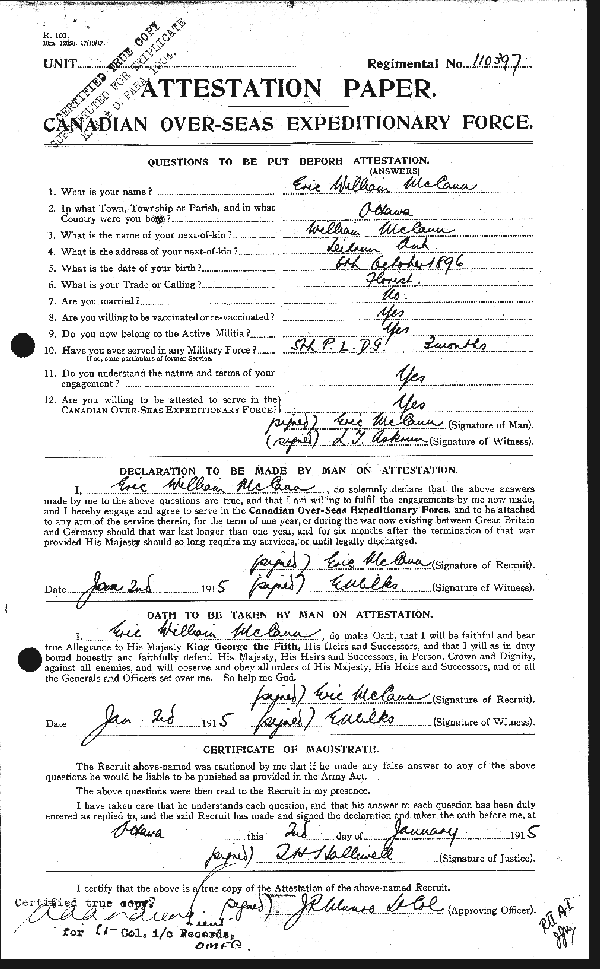 UNIT Regimental No. 110397
CERTIFIED TRUE COPY
ATTESTATION PAPER.
CANADIAN OVER-SEAS EXPEDITIONARY FORCE.
QUESTIONS TO BE PUT BEFORE ATTESTATION.
(ANSWERS)
1. What is your name? Eric William McCann
2. In what Town, Township or Parish, and in what
Country were you born? Ottawa
3. What is the name of your next-of-kin? William McCann
4. What is the address of your next-of-kin? Ont
5. What is the date of your birth? 6th October 1896
6. What is your Trade or Calling? Florist.
7. Are you married? No.
8. Are you willing to be vaccinated or re-vaccinated? Yes
9. Do you now belong to the Active Militia? Yes
10. Have you ever served in any Military Force? 5th P. L. D. G. 3 months
If so, state particulars of former Service.
11. Do you understand the nature and terms of your
engagement? Yes
12. Are you willing to be attested to serve in the
CANADIAN OVER-SEAS EXPEDITIONARY FORCE? Yes
(signed) Eric McCann (Signature of Man).
(signed) (Signature of Witness).
DECLARATION TO BE MADE BY MAN ON ATTESTATION.
I, Eric William McCann, do solemnly declare that the above answers
made by me to the above questions are true, and that I am willing to fulfil the engagements by me now made,
and I hereby engage and agree to serve in the Canadian Over-Seas Expeditionary Force, and to be attached
to any arm of the service therein, for the term of one year, or during the war now existing between Great Britain
and Germany should that war last longer than one year, and for six months after the termination of that war
provided His Majesty should so long require my services, or until legally discharged.
(signed) Eric McCann (Signature of Recruit)
Date Jan 2nd 1915 (signed) E Wilks (Signature of Witness)
OATH TO BE TAKEN BY MAN ON ATTESTATION.
I, Eric William McCann, do make Oath, that I will be faithful and bear
true Allegiance to His Majesty King George the Fifth, His Heirs and Successors, and that I will as in duty
bound honestly and faithfully defend His Majesty, His Heirs and Successors, in Person, Crown and Dignity,
against all enemies, and will observe and obey all orders of His Majesty, His Heirs and Successors, and of all
the Generals and Officers set over me. So help me God.
(signed) Eric McCann (Signature of Recruit)
Date Jan. 2nd 1915 (signed) E Wilks (Signature of Witness)
CERTIFICATE OF MAGISTRATE.
The Recruit above-named was cautioned by me that if he made any false answer to any of the above
questions he would be liable to be punished as provided in the Army Act.
The above questions were then read to the Recruit in my presence.
I have taken care that he understands each question, and that his answer to each question has been duly
entered as replied to, and the said Recruit has made and signed the declaration and taken the oath before me, at
Ottawa this 2nd day of January 1915
(signed) Halliwell (Signature of Justice)
I certify that the above is a true copy of the Attestation of the above-named Recruit.
Certified true copy? (signed) J R Munro Lt Col (Approving Officer)
Lieut
for Lt-Col. i/c Records,
OMFC.